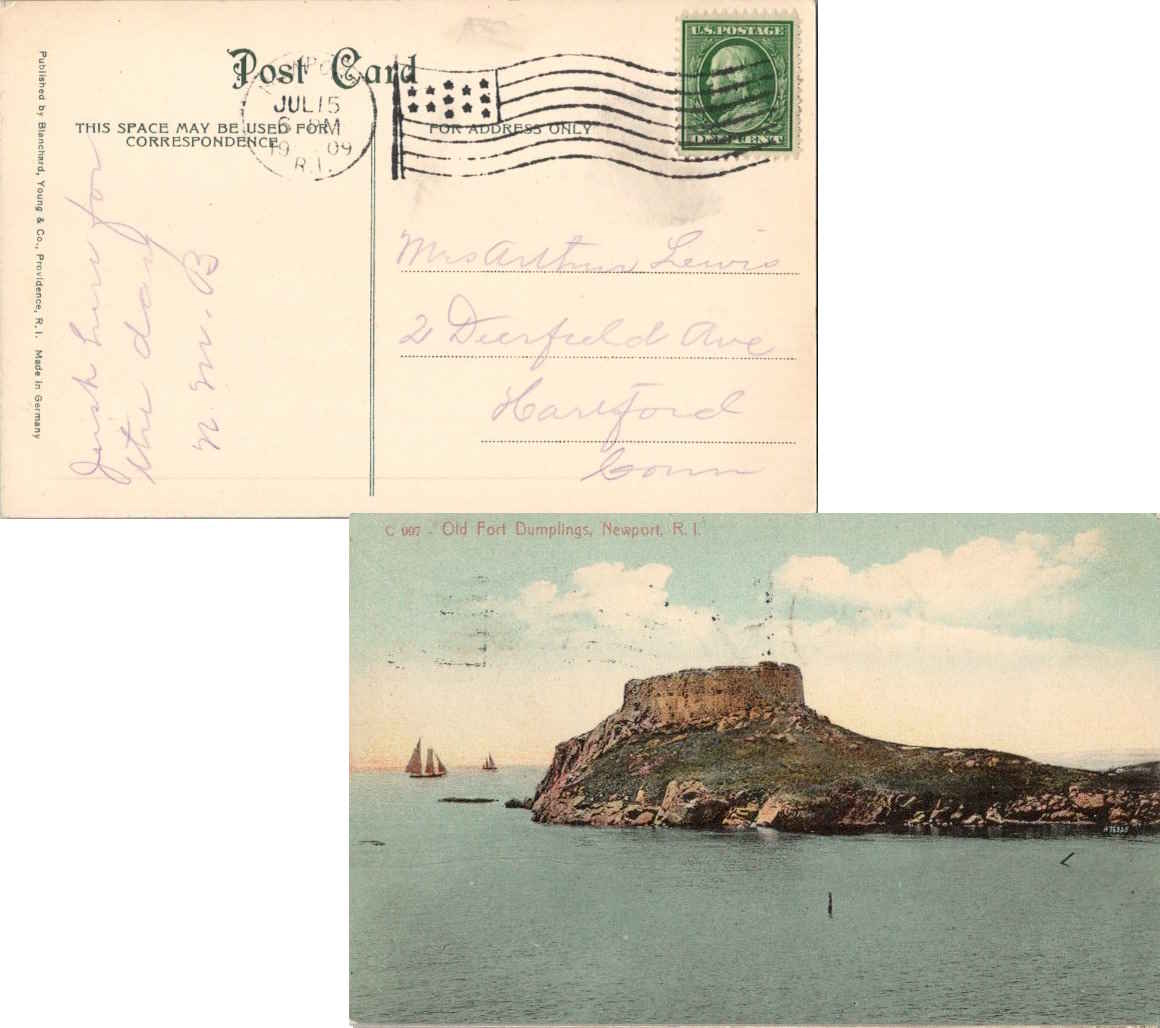 Post Card
THIS SPACE MAY BE USED FOR
CORRESPONDENCE
FOR ADDRESS ONLY
NEWPORT
JUL 15
6 PM
1909
R.I.
U.S. POSTAGE
ONE CENT
Published by Blanchard, Young & Co., Providence, R. I. Made in Germany
Just here for
the day
N. M. B
Mrs Arthur Lewis
2 Deerfield Ave
Hartford
Conn
C 997 - Old Fort Dumplings, Newport, R. I.